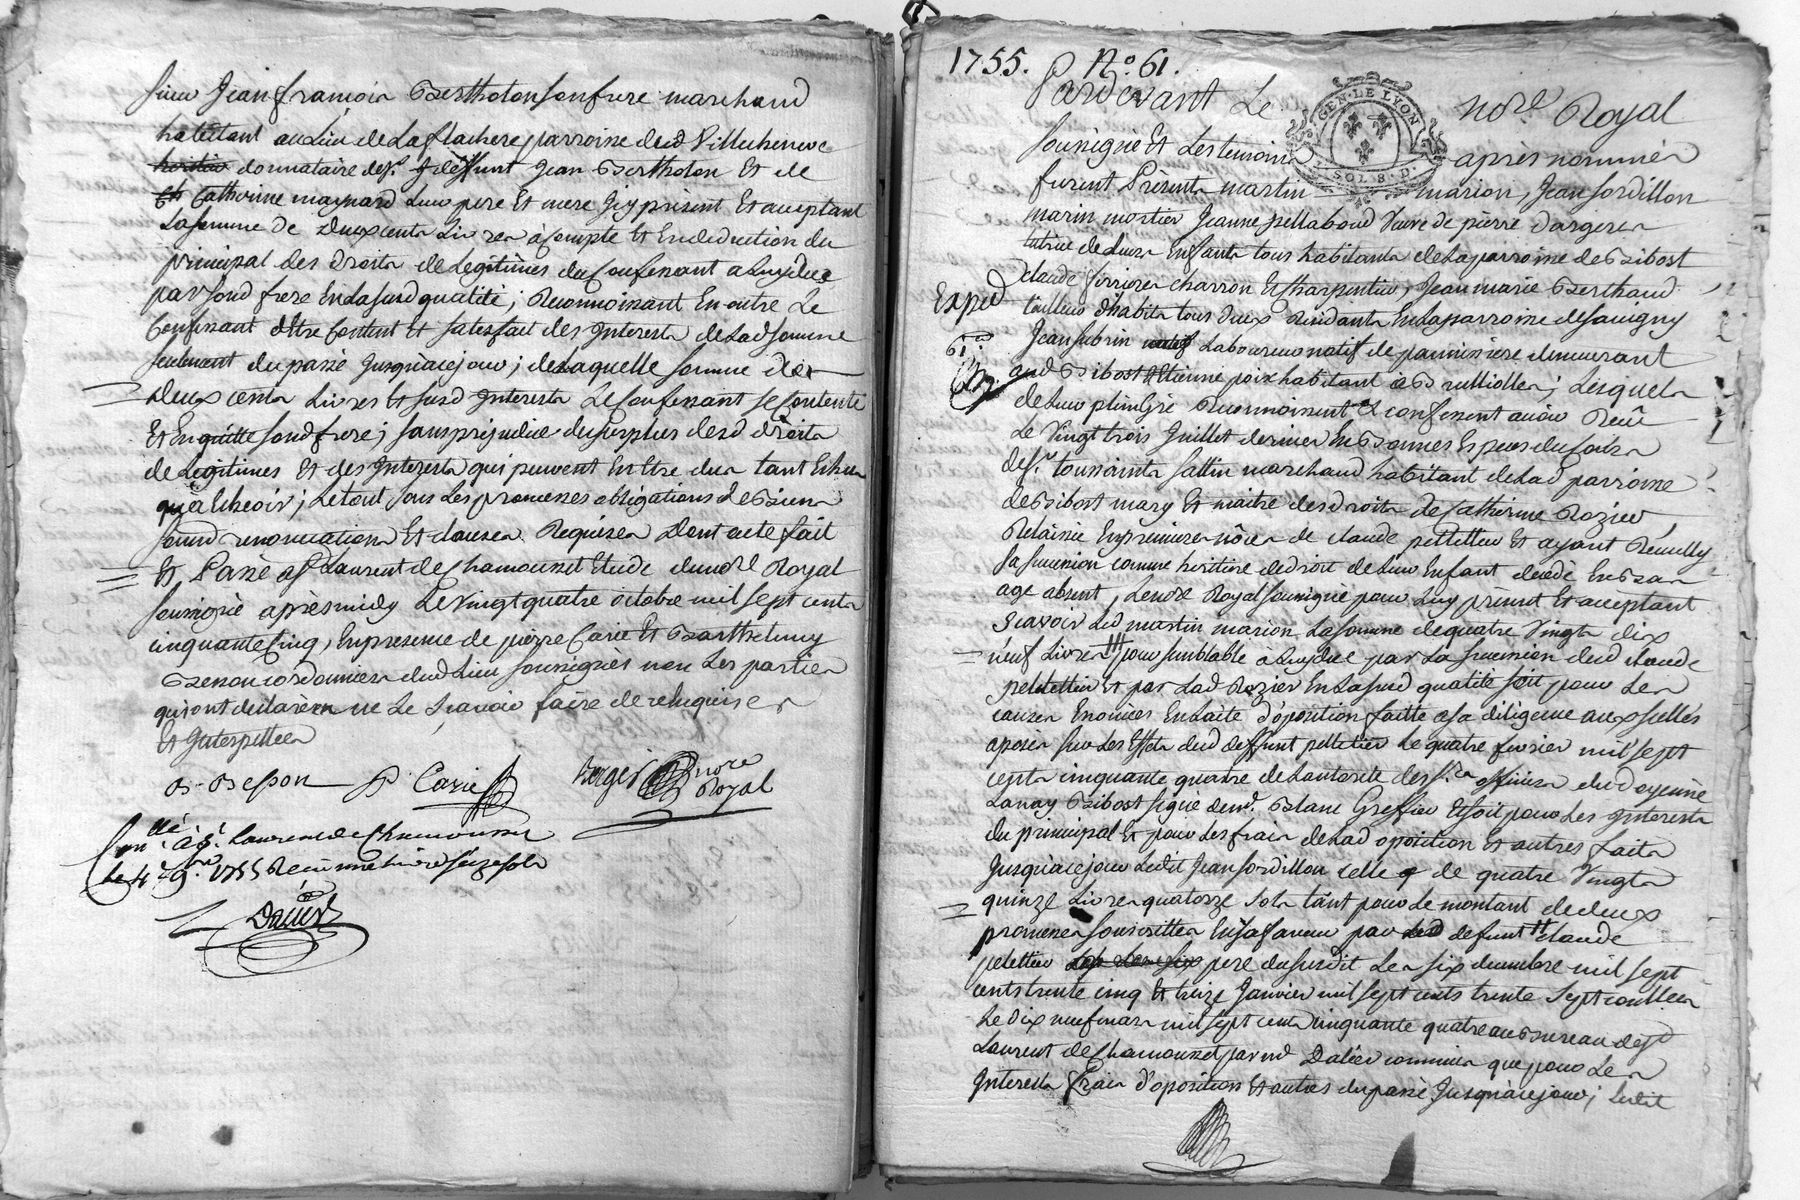 sieur Jean françois Bertholon son frere marchand
habitant au lieu de la flachere parroisse dud Villecheneve
donnataire de sr deffunt Jean Bertholon Et de
Catherine maynard leur pere Et mere Icy présent Et acceptant
La somme de deux cents Livres à compte Et En deduction du
principal des droits de Legitimes du Confessant a Luy deus
par sond frere En la susd qualité ; Reconnoissant En outre Le
Confessant d'Etre Content Et satisfait des Interests de lad somme
seulement du passé Jusqu'à ce jour ; de laquelle somme de
deux cents Livres Et susd Interests Le Confessant se Contente
Et En quitte sond frere ; sans préjudice du surplus desd droits
de Legitimes Et des Interests qui peuvent En Etre dus tant Echus
qu'à Echeoir ; Le tout sous Les promesses obligations de Biens
soumd renonciation Et clauses Requises Dont acte fait
Et Passé a St Laurent de Chamousset Etude du nore Royal
soussigné après midy Le vingt quatre octobre mil sept cents
cinquante Cinq, En presence de pierre Carie Et Barthelemy
Besson cordonniers dud Lieu soussignés non Les parties
qui ont declaré ne Le scavoir faire de ce Enquises
Et Interpellées
B. Besson P. Carie Berger nore
Royal
Conllé à St Laurent de Chamousset
Le 4e 9bre 1755 Recu une livre seize sols
Dalier
1755. No. 61.
Pardevant Le nore Royal
GEN. DE LYON
SOLS. D.
soussigné Et Les temoins après nommés
furent Présents martin marion, Jean sordillon
marin mortier Jeanne pellaboud Veuve de pierre Dargere
tutrice de Leurs Enfants tous habitants de la parroisse de Bibost
Claude ferriere charron Et Charpentier, Jean marie Berthaud
Exped
tailleur d'habits tous deux Residants En la parroisse de savigny
Jean subrin Laboureur natif de pamissiere demeurant
aud Bibost Et Etienne poix habitant à Brullioles ; Lesquels
de Leur plein gré Reconnoissent Et confessent avoir Reçu
Le Vingt trois Juillet dernier En Bonnes Especes du cours
de sr toussaints fattin marchand habitant de Lad parroisse
de Bibost mary Et maitre des droits de Catherine Rozier,
Relaissée En premieres nôces de claude pelletier Et ayant Recueilly
sa succession comme heritiere de droit de Leur Enfant decedé En Bas
age absent, Le nore Royal soussigné pour Luy present Et acceptant
Scavoir Led martin marion La somme de quatre Vingts dix
neuf Livres pour semblable à Luy due par La succession dud claude
pelletier Et par Lad Rozier En La susd qualité soit pour Les
causes Enoncées En La ite d'oposition faitte a sa diligence aux scellés
aposés sur Les Effets dud deffunt pelletier Le quatre fevrier mil sept
cents cinquante quatre de L'autorité des srs officiers du doyenné
Lanay Bibost signé de mr. Blanc Greffier Et soit pour Les Interests
du principal Et pour Les frais de Lad oposition Et autres faits
Jusqu'à ce jour Ledit Jean sordillon celle de quatre Vingts
quinze Livres quatorze sols tant pour Le montant de deux
promesses souscrittes En sa faveur par defunt claude
peletier pere du susdit Les six decembre mil sept
cents trente cinq Et treize Janvier mil sept cents trente sept conllées
Le dix neuf mars mil sept cents cinquante quatre au Bureau de St
Laurent de Chamousset par mr Dalier commis que pour Les
Interests frais d'oposition Et autres du passé Jusqu'à ce jour ; Ledit